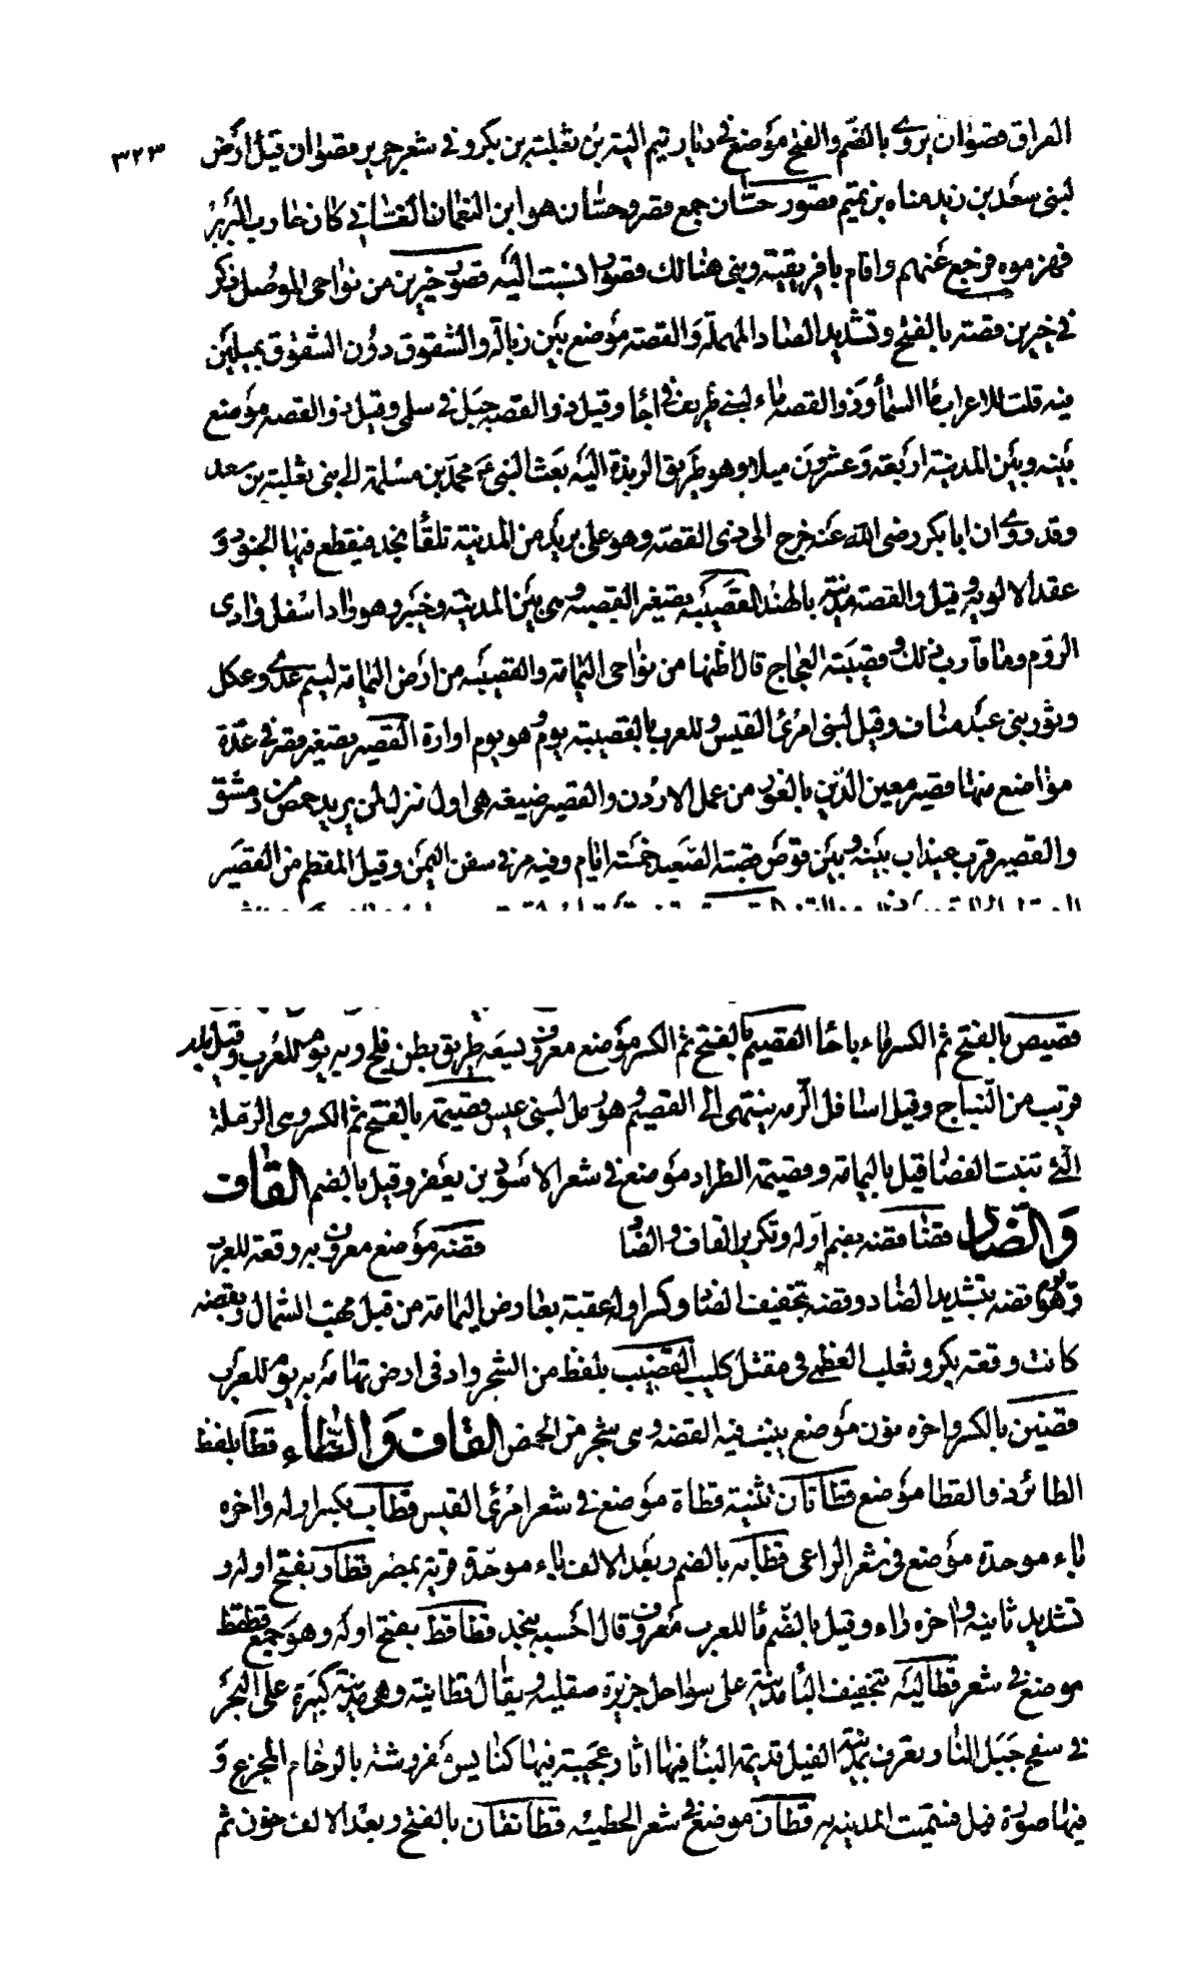 ٣٢٣
العراق قصوان يروى بالضم والفتح موضع في ديار تيم الله بن ثعلبة بن بكر وفي شعر جرير قصوان قيل ارض
لبنى سعد بن زيد مناه بن تميم قصور حسان جمع قصر وحسان هو ابن النعمان الغساني كان حارب البربر
فهزموه فرجع عنهم واقام بافريقية وبنى هنالك قصورا نسبت اليه قصور خيرين من نواحى الموصل ذكر
في خيرين قصة بالفتح وتشديد الصاد المهملة والقصة موضع بين زبالة والشقوق دون الشقوق بميلين
فيه قلت للاعراب ماء السماء وذو القصه ماء لبنى طريف في اجا وقيل ذو القصه جبل في سلمى وقيل ذو القصه موضع
بينه وبين المدينة اربعة وعشرون ميلا وهو طريق الربذة اليه بعث النبى عم محمد بن مسلمة الى بنى ثعلبة بن سعد
وقد روى ان ابا بكر رضى الله عنه خرج الى ذى القصه وهو على بريد من المدينة تلقا نجد فيقطع فيها الجنود و
عقد الالويه وقيل والقصه مدينة بالهند القصيبه تصغير القصبه وهى بين المدينة وخيبر وهو واد اسفل وادى
الروم وما قارب ذلك وقصيبة العجاج قال اظنها من نواحى اليمامة والقصيبه من ارض اليمامة لتيم عدى وعكل
وثور بنى عبد مناف وقيل لبنى امرئ القيس وللعرب بالقصيبة يوم وهو يوم اوارة القصير تصغير قصر في عدة
مواضع منها قصير معين الدين بالغور من عمل الاردن والقصير ضيعه هى اول منزل لمن يريد حمص من دمشق
والقصير قرب عيذاب بينه وبين قوص قصبة الصعيد خمسة ايام وفيه مرفى سفن اليمن وقيل المقطم من القصير
قصيص بالفتح ثم الكسر ماء باجا القصيم بالفتح ثم الكسر موضع معروف يسعه طريق بطن فلج وبه يوم للعرب وقيل بلد
قريب من النباج وقيل اسافل الرمه ينتهى الى القصيم وهو رمل لبنى عبس قصيمة بالفتح ثم الكسر وهى الرملة
التى تنبت الغضا قيل باليمامة وقصيمة الطراد موضع في شعر الاسود بن يعفر وقيل بالضم القاف
والضاد قضاقضه بضم اوله وتكرير القاف والضاد قضه موضع معروف به وقعة للعرب
وهو قضه بتشديد الضاد وقضه بتخفيف الضاد وكسر اوله عقبة بعارض اليمامة من قبل مهب الشمال وبقضه
كانت وقعة بكر وتغلب العظمى في مقتل كليب القضيب بلفظ من الشجر واد في ارض تهامة به يوم للعرب
قضين بالكسر واخره نون موضع ينبت فيه القضه وهى شجر من الحمض القاف والطاء قطا بلفظ
الطائر ذو القطا موضع قطاتان تثنية قطاة موضع في شعر امرئ القيس قطاب بكسر اوله واخره
باء موحدة موضع في شعر الراعى قطابه بالضم وبعد الالف باء موحدة قرية بمصر قطار بفتح اوله و
تشديد ثانيه واخره راء وقيل بالضم ماء للعرب معروف قال احسبه بنجد قطاقط بفتح اوله وهو جمع قطقط
موضع في شعر قطاليه بتخفيف اليا مدينة على سواحل جزيرة صقليه ويقال قطانية وهى مدينة كبيرة على البحر
في سفح جبل النار تعرف بمدينة الفيل قديمة البناء فيها اثار عجيبة فيها كنايس مفروشة بالرخام المجزع و
فيها صورة فيل فسميت المدينه به قطان موضع في شعر الحطيئه قطانقان بالفتح وبعد الالف نون ثم